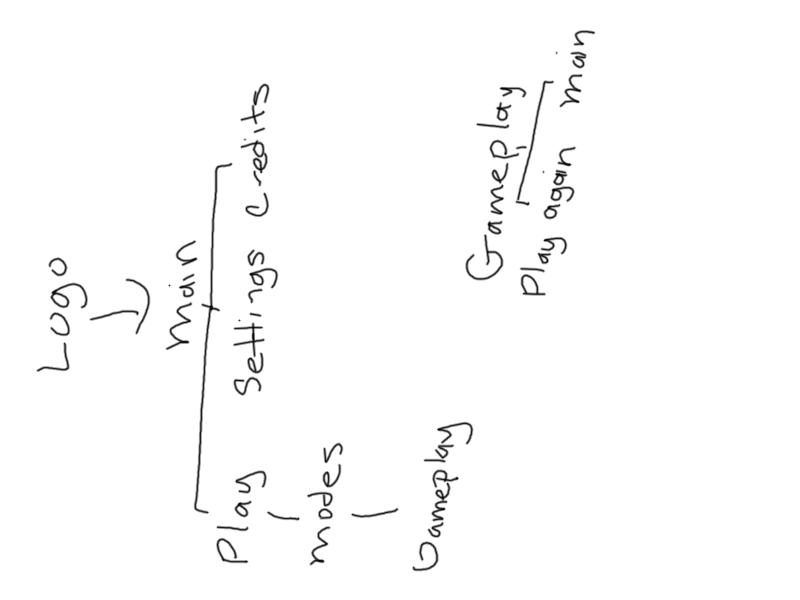 Logo
main
Play Settings Credits
modes
Gameplay
Gameplay
Play again main